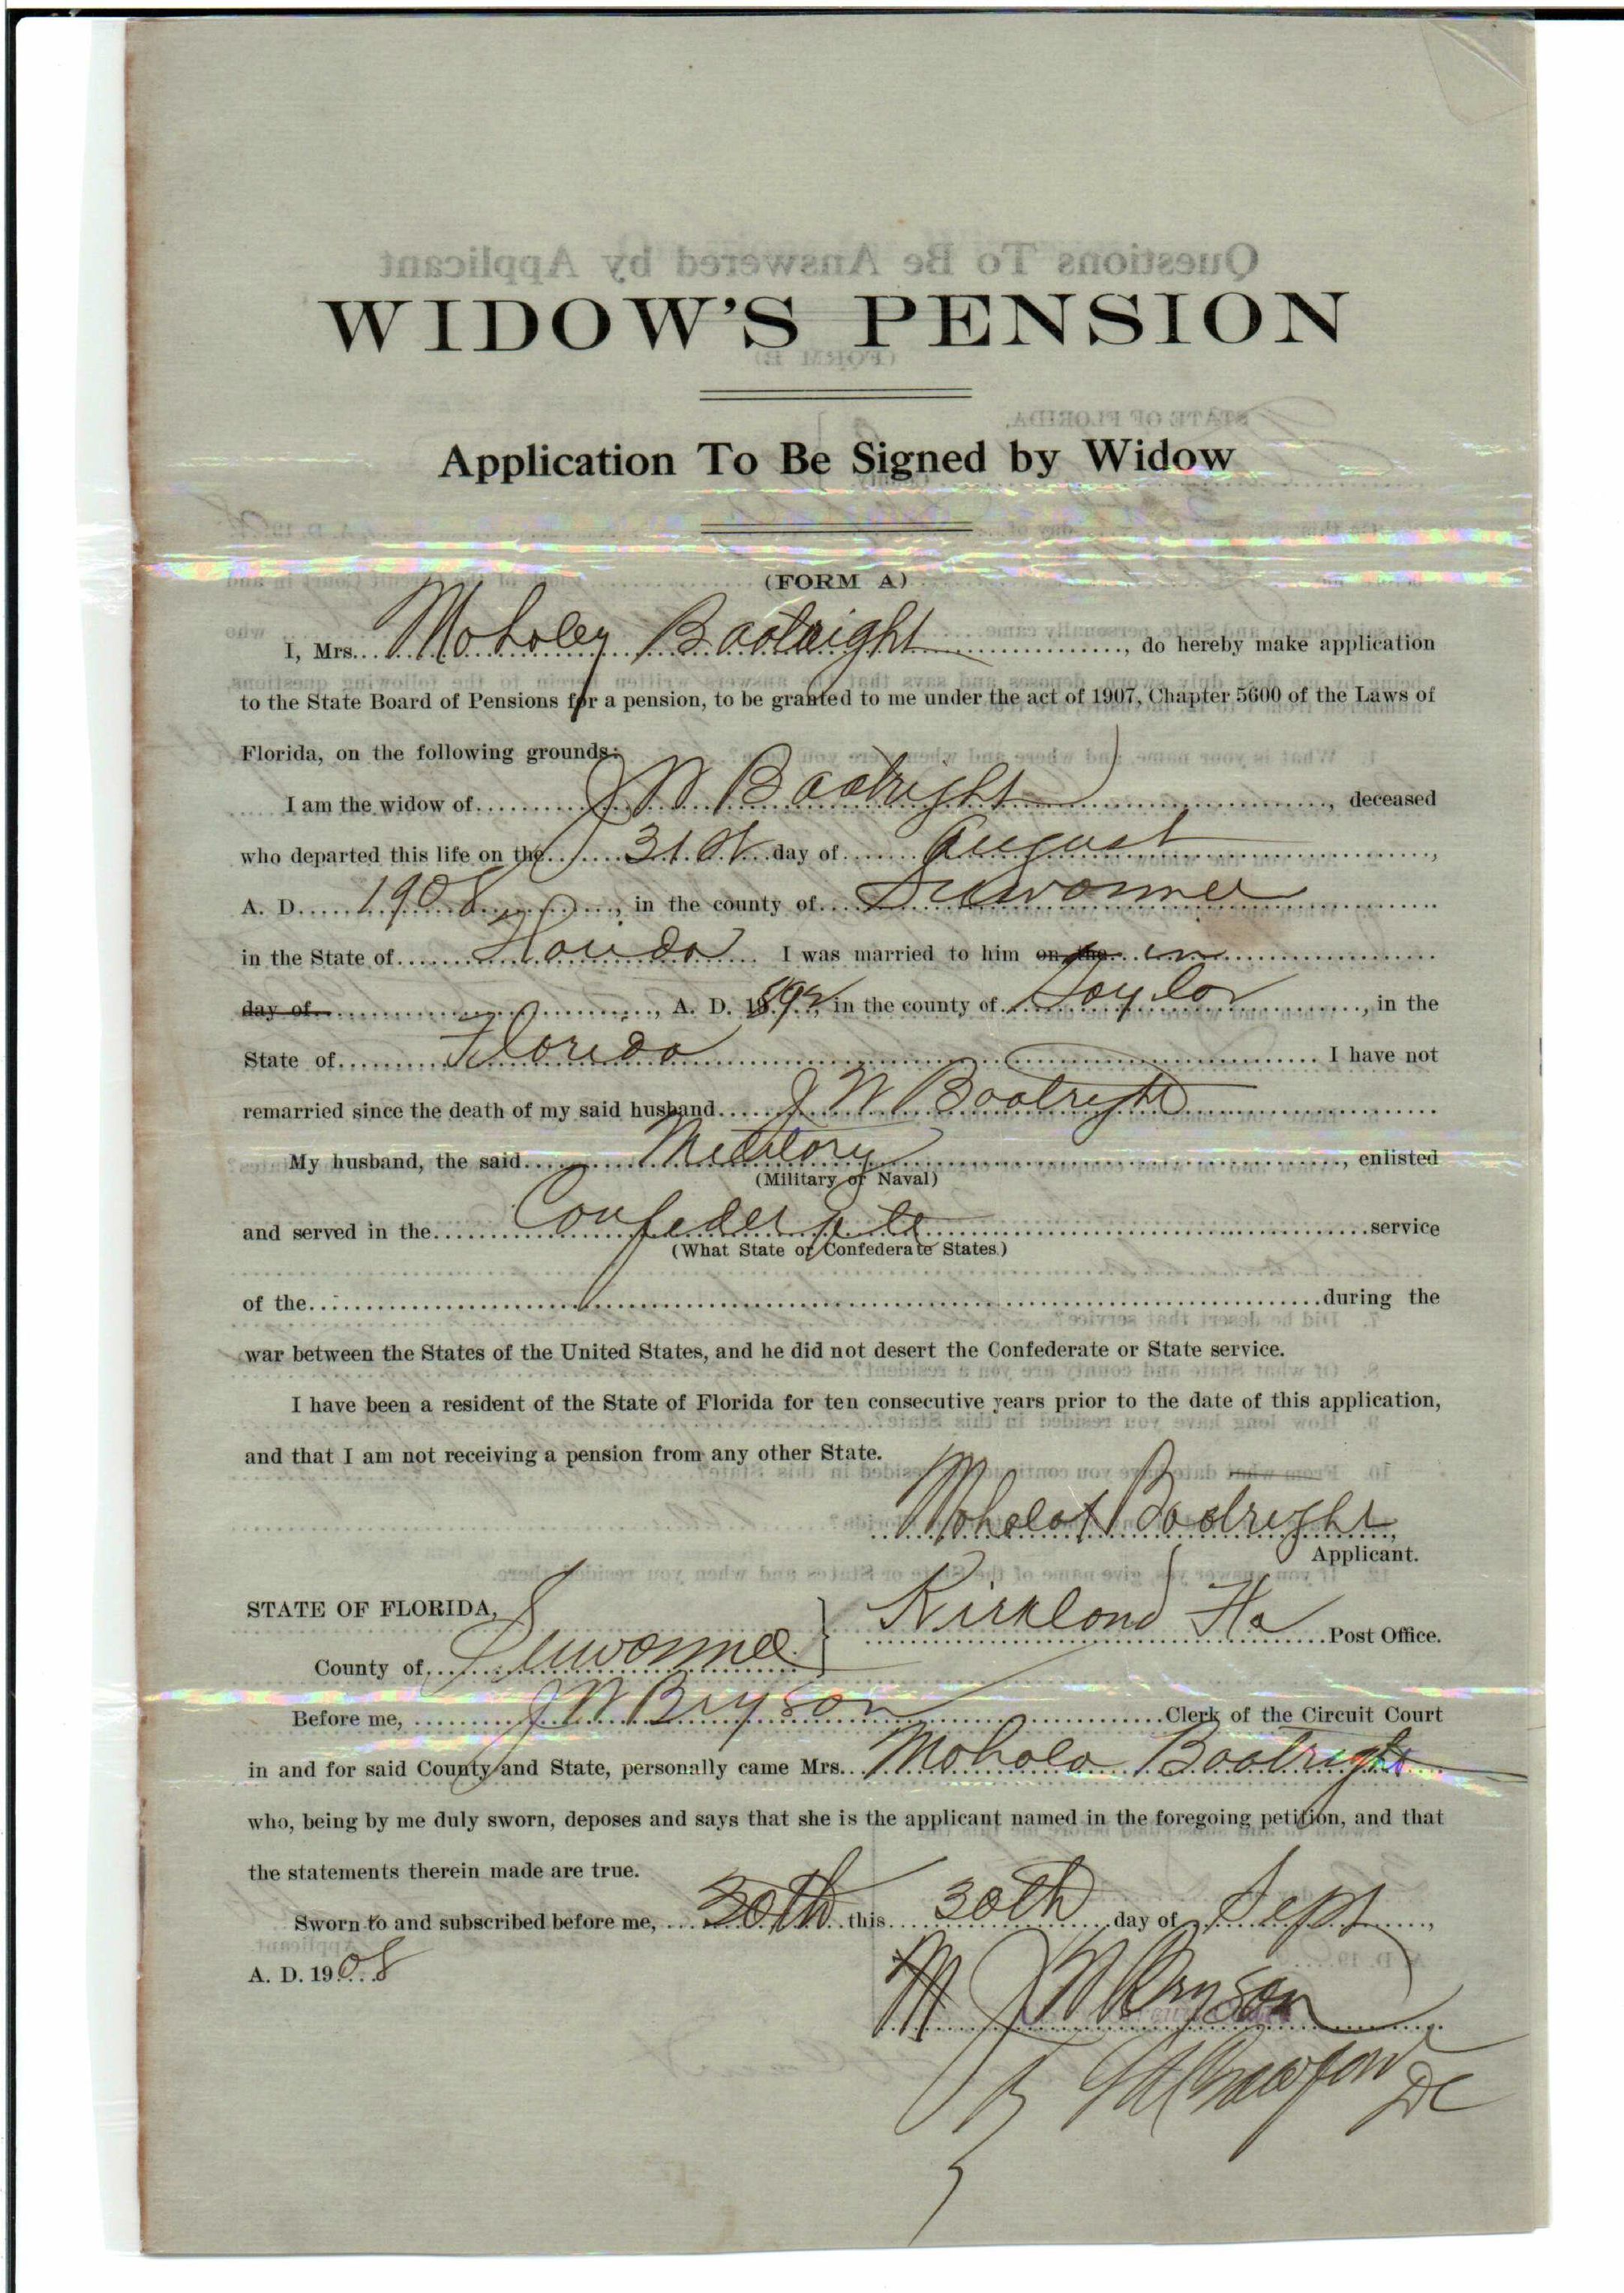 WIDOW'S PENSION
Application To Be Signed by Widow
(FORM A)
I, Mrs. Mohaley Boatright, do hereby make application
to the State Board of Pensions for a pension, to be granted to me under the act of 1907, Chapter 5600 of the Laws of
Florida, on the following grounds:
I am the widow of J W Boatright, deceased
who departed this life on the 31st day of August,
A. D. 1908, in the county of Suwannee
in the State of Florida I was married to him on the in
day of, A. D. 1892, in the county of Taylor, in the
State of Florida I have not
remarried since the death of my said husband J W Boatright
My husband, the said Military, enlisted
(Military or Naval)
and served in the Confederate service
(What State or Confederate States)
of the during the
war between the States of the United States, and he did not desert the Confederate or State service.
I have been a resident of the State of Florida for ten consecutive years prior to the date of this application,
and that I am not receiving a pension from any other State.
Boatright,
Applicant.
STATE OF FLORIDA,
Kirkland Fla Post Office.
County of Suwannee
Before me, J W Bryson Clerk of the Circuit Court
in and for said County and State, personally came Mrs. Mahala Boatright
who, being by me duly sworn, deposes and says that she is the applicant named in the foregoing petition, and that
the statements therein made are true.
Sworn to and subscribed before me, 30th this 30th day of Sept,
A. D. 1908
J W Bryson
By Crawford DC